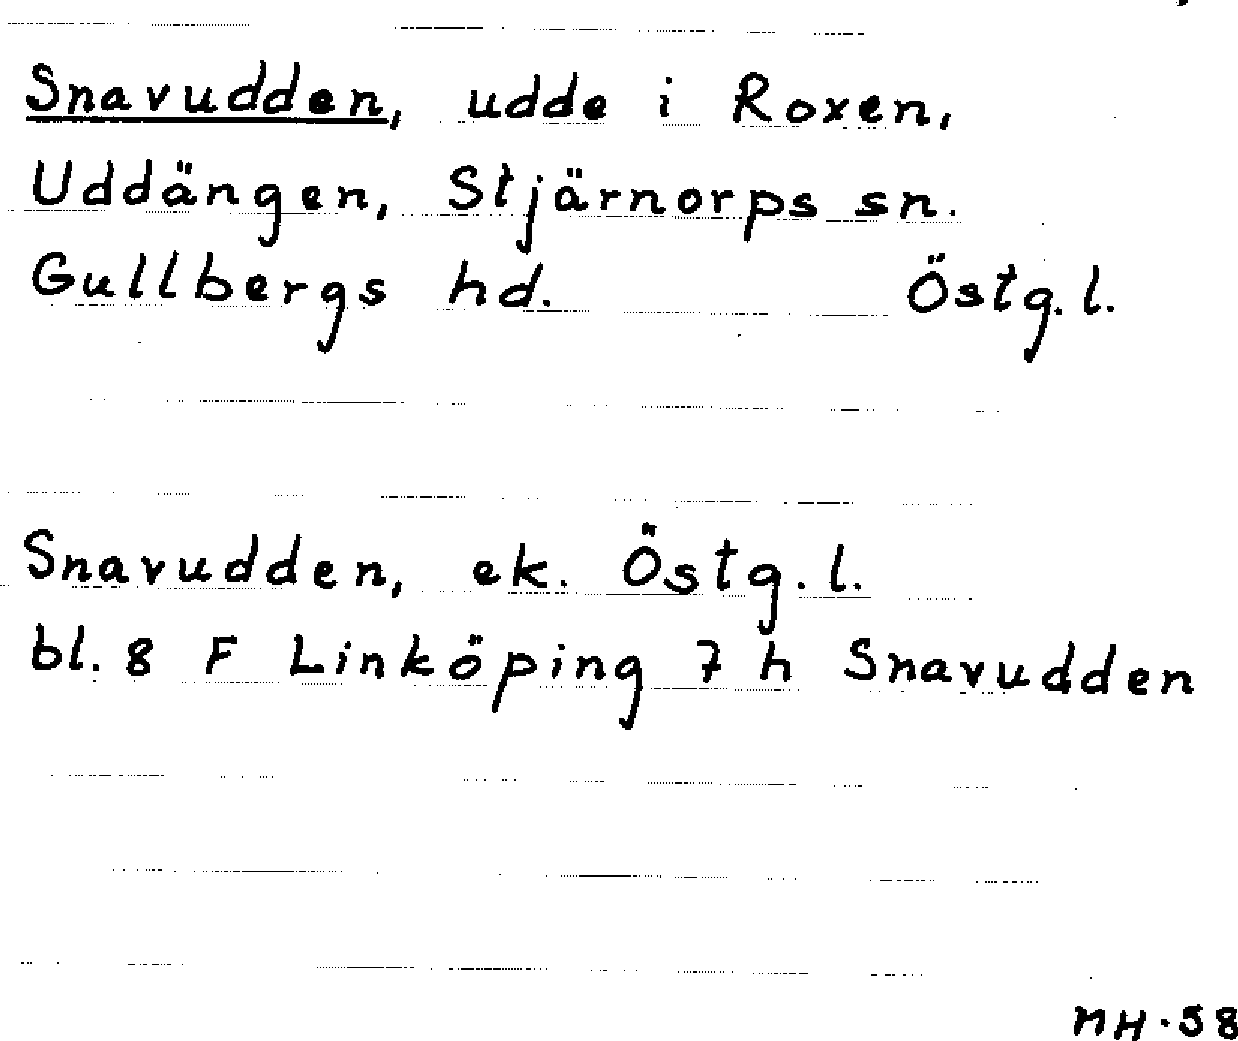 Snavudden, udde i Roxen,
Uddängen, Stjärnorps sn.
Gullbergs hd. Östg. l.
Snavudden, ek. Östg. l.
bl. 8 F Linköping 7 h Snavudden
MH·58